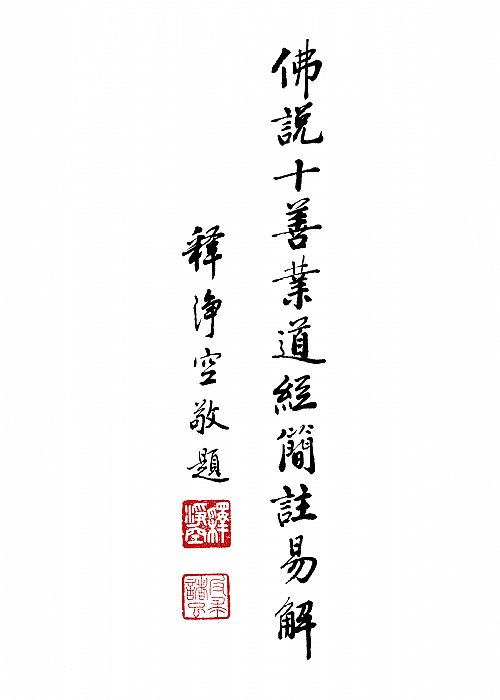 佛説十善業道經簡註易解
释淨空敬題
釋淨空